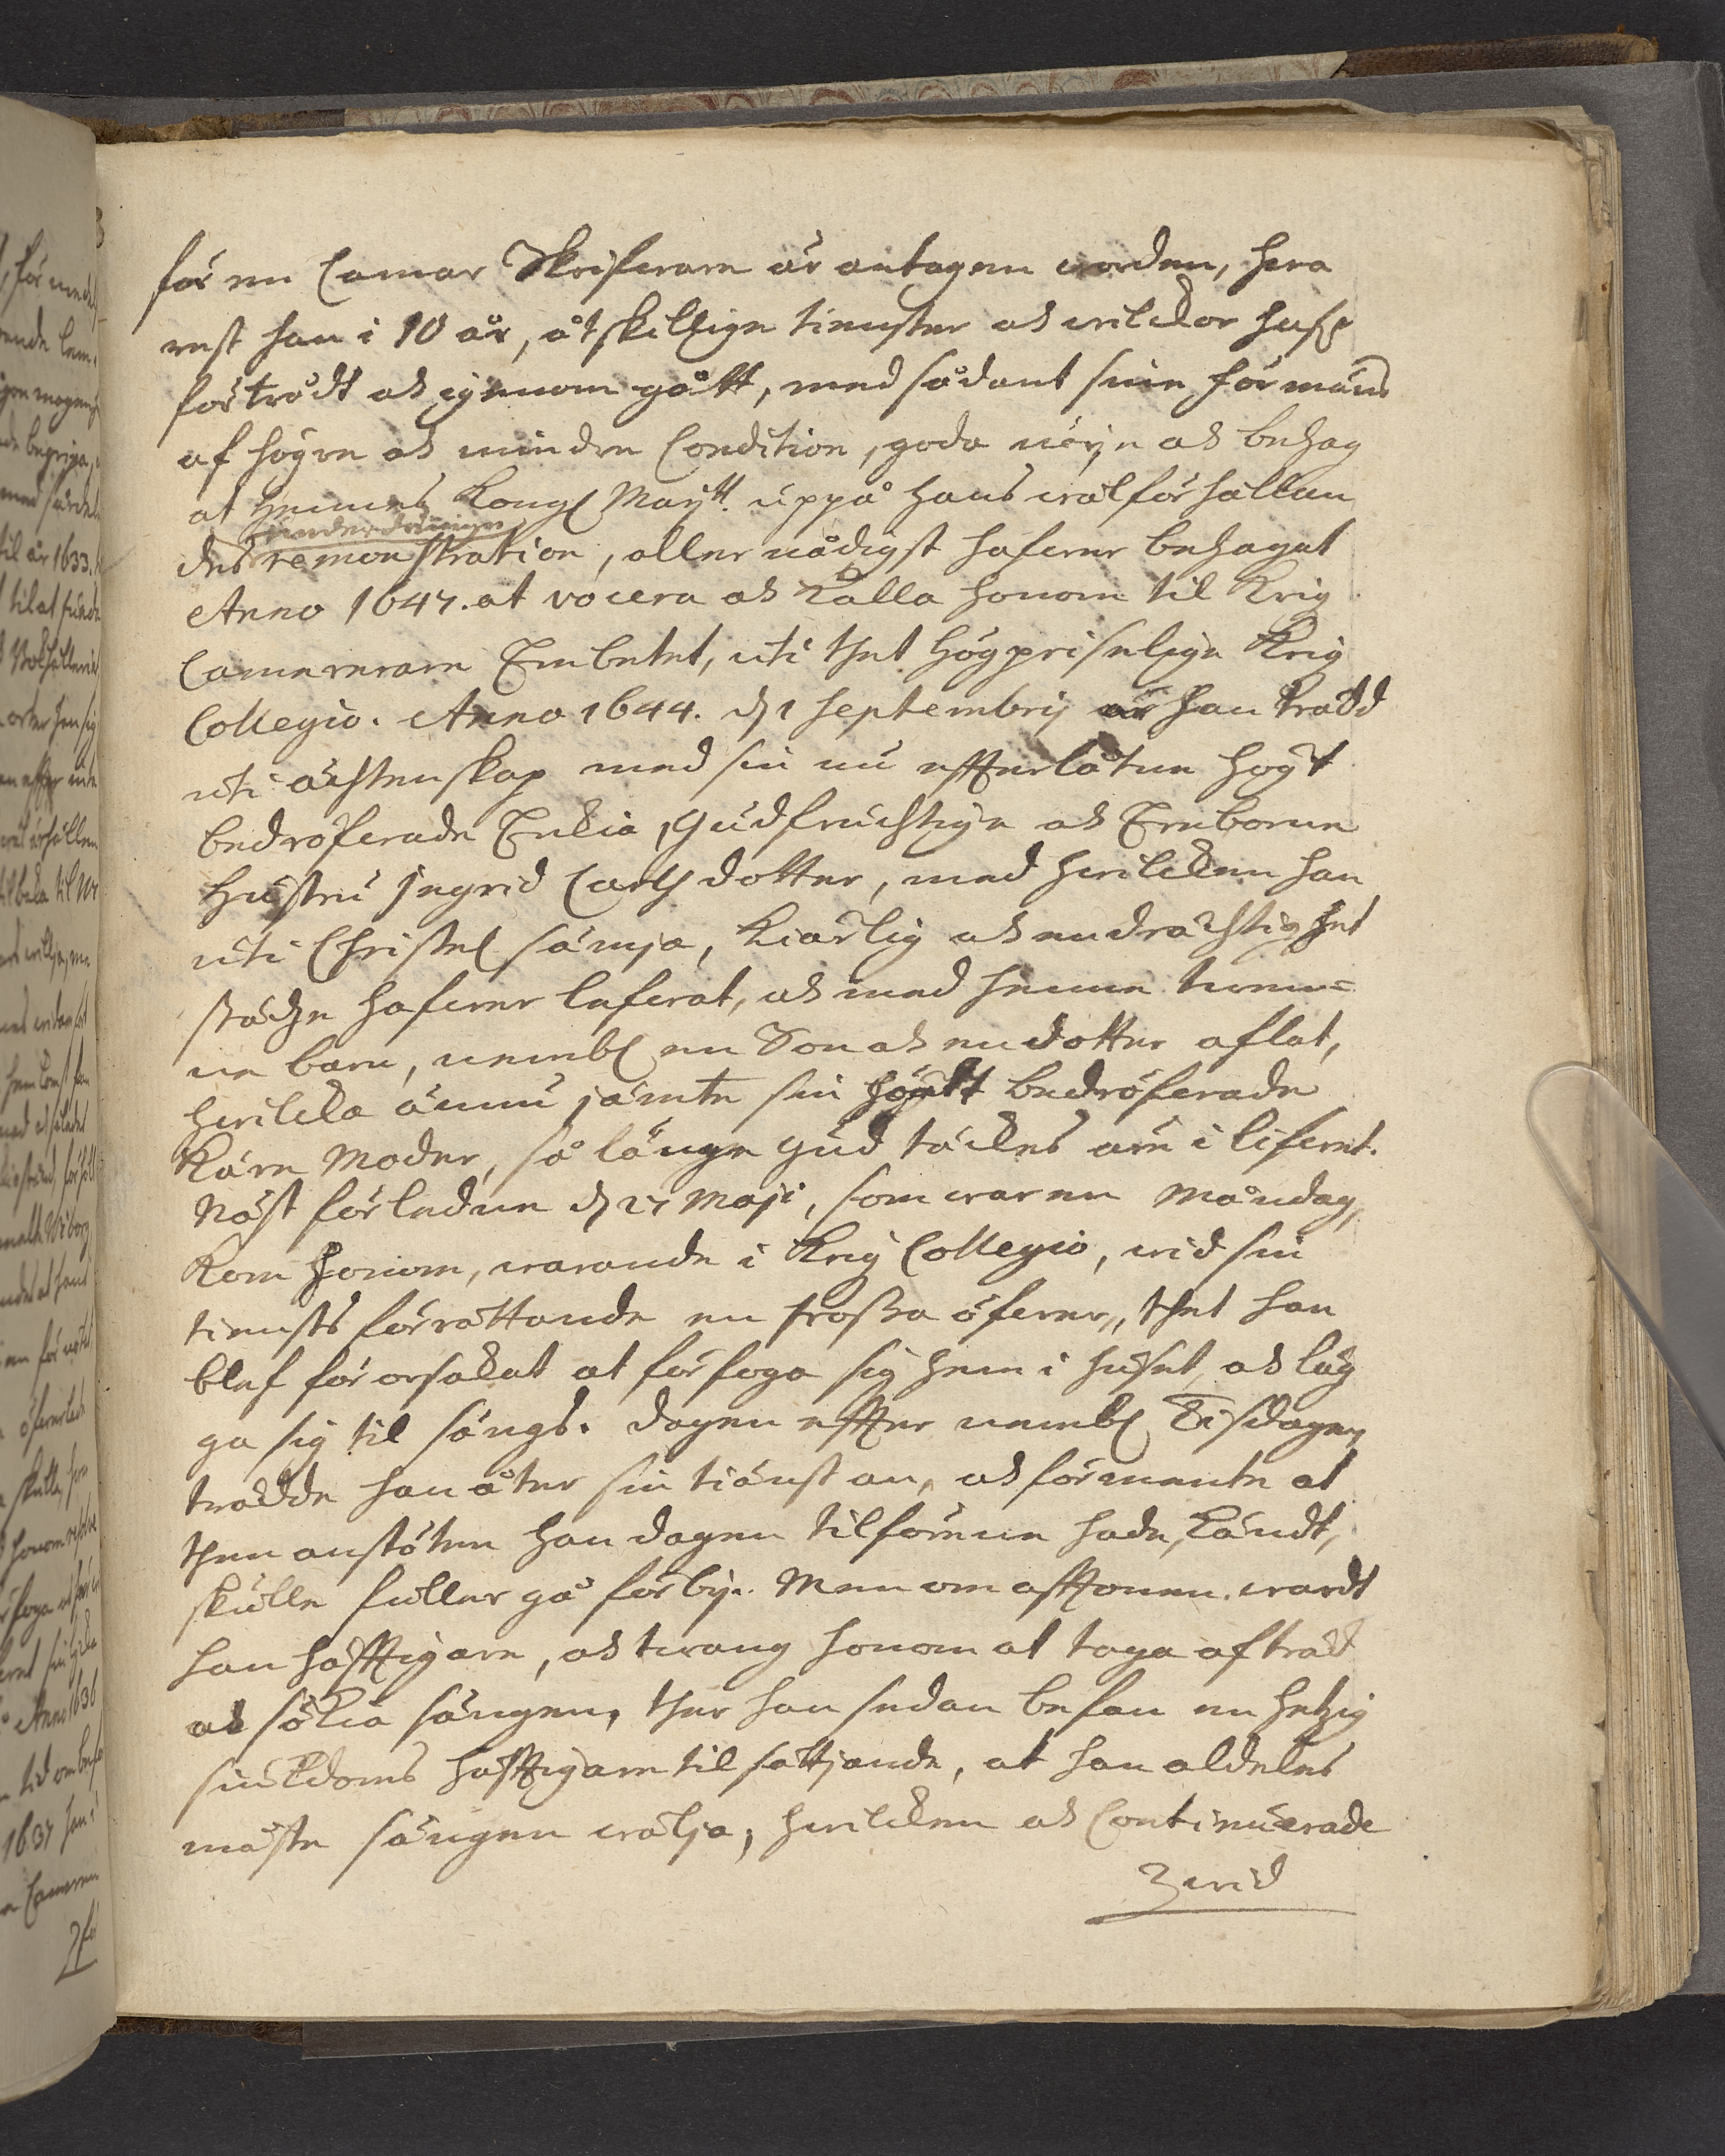 för en Camar Skrifware är antagen worden, hwa
rest han i 10 år, åtskillige tienster och wilckor haf:r
förträdt och igenom gått, med sådant sine förmäns
af högre och mindre Condition, goda nöije och behag
at Hennes Kongl Maij:tt. uppå hans wälförhållan
underdånige
des remonstration, aller nådigst hafwer behagat
Anno 1647. at vocera och kalla honom til Krig
Camererare Embetet, uti thet högpriselige Krig
Collegio. Anno 1644. d 1 Septembrij är han trädd
uti ächtenskap med sin nu effterlåtne högt
bedröfwade Enckia, Gudfruchtige och Ehreborne
Hustru Jngrid Carlsdotter, med hwilcken han
uti Christel sämja, Kiärlig och endrächtighet
städze hafwer lefwat, och med henne twen=
ne barn, nembl en Son och en dotter aflat,
hwilcka ännu jämte sin högst bedröfwade
Käre Moder, så länge Gud täckes äre i lifwet.
Näst förledne d 27 Maji, som war en Måndag,
Kom honom, warande i Krig Collegio, wid sin
tiensts förrättande en frossa öfwer, thet han
blef förorsakat at förfoga sig hem i huset, och läg
ga sig til sängs. Dagen effter nembl Tisdagen,
trädde han åter sin tiänst an, och förmente at
then anstöten han dagen tilförenne hade, kändt,
skulle fuller gå förbij. Men om afftonen wardt
han häfftigare, och twang honom at taga afträd
och sökia sängen, ther han sedan befan en hetzig
siuckdoms häfftigare tilsättjande, at han aldeles
måste sängen wälja, hwilcken och Continuerade
wid